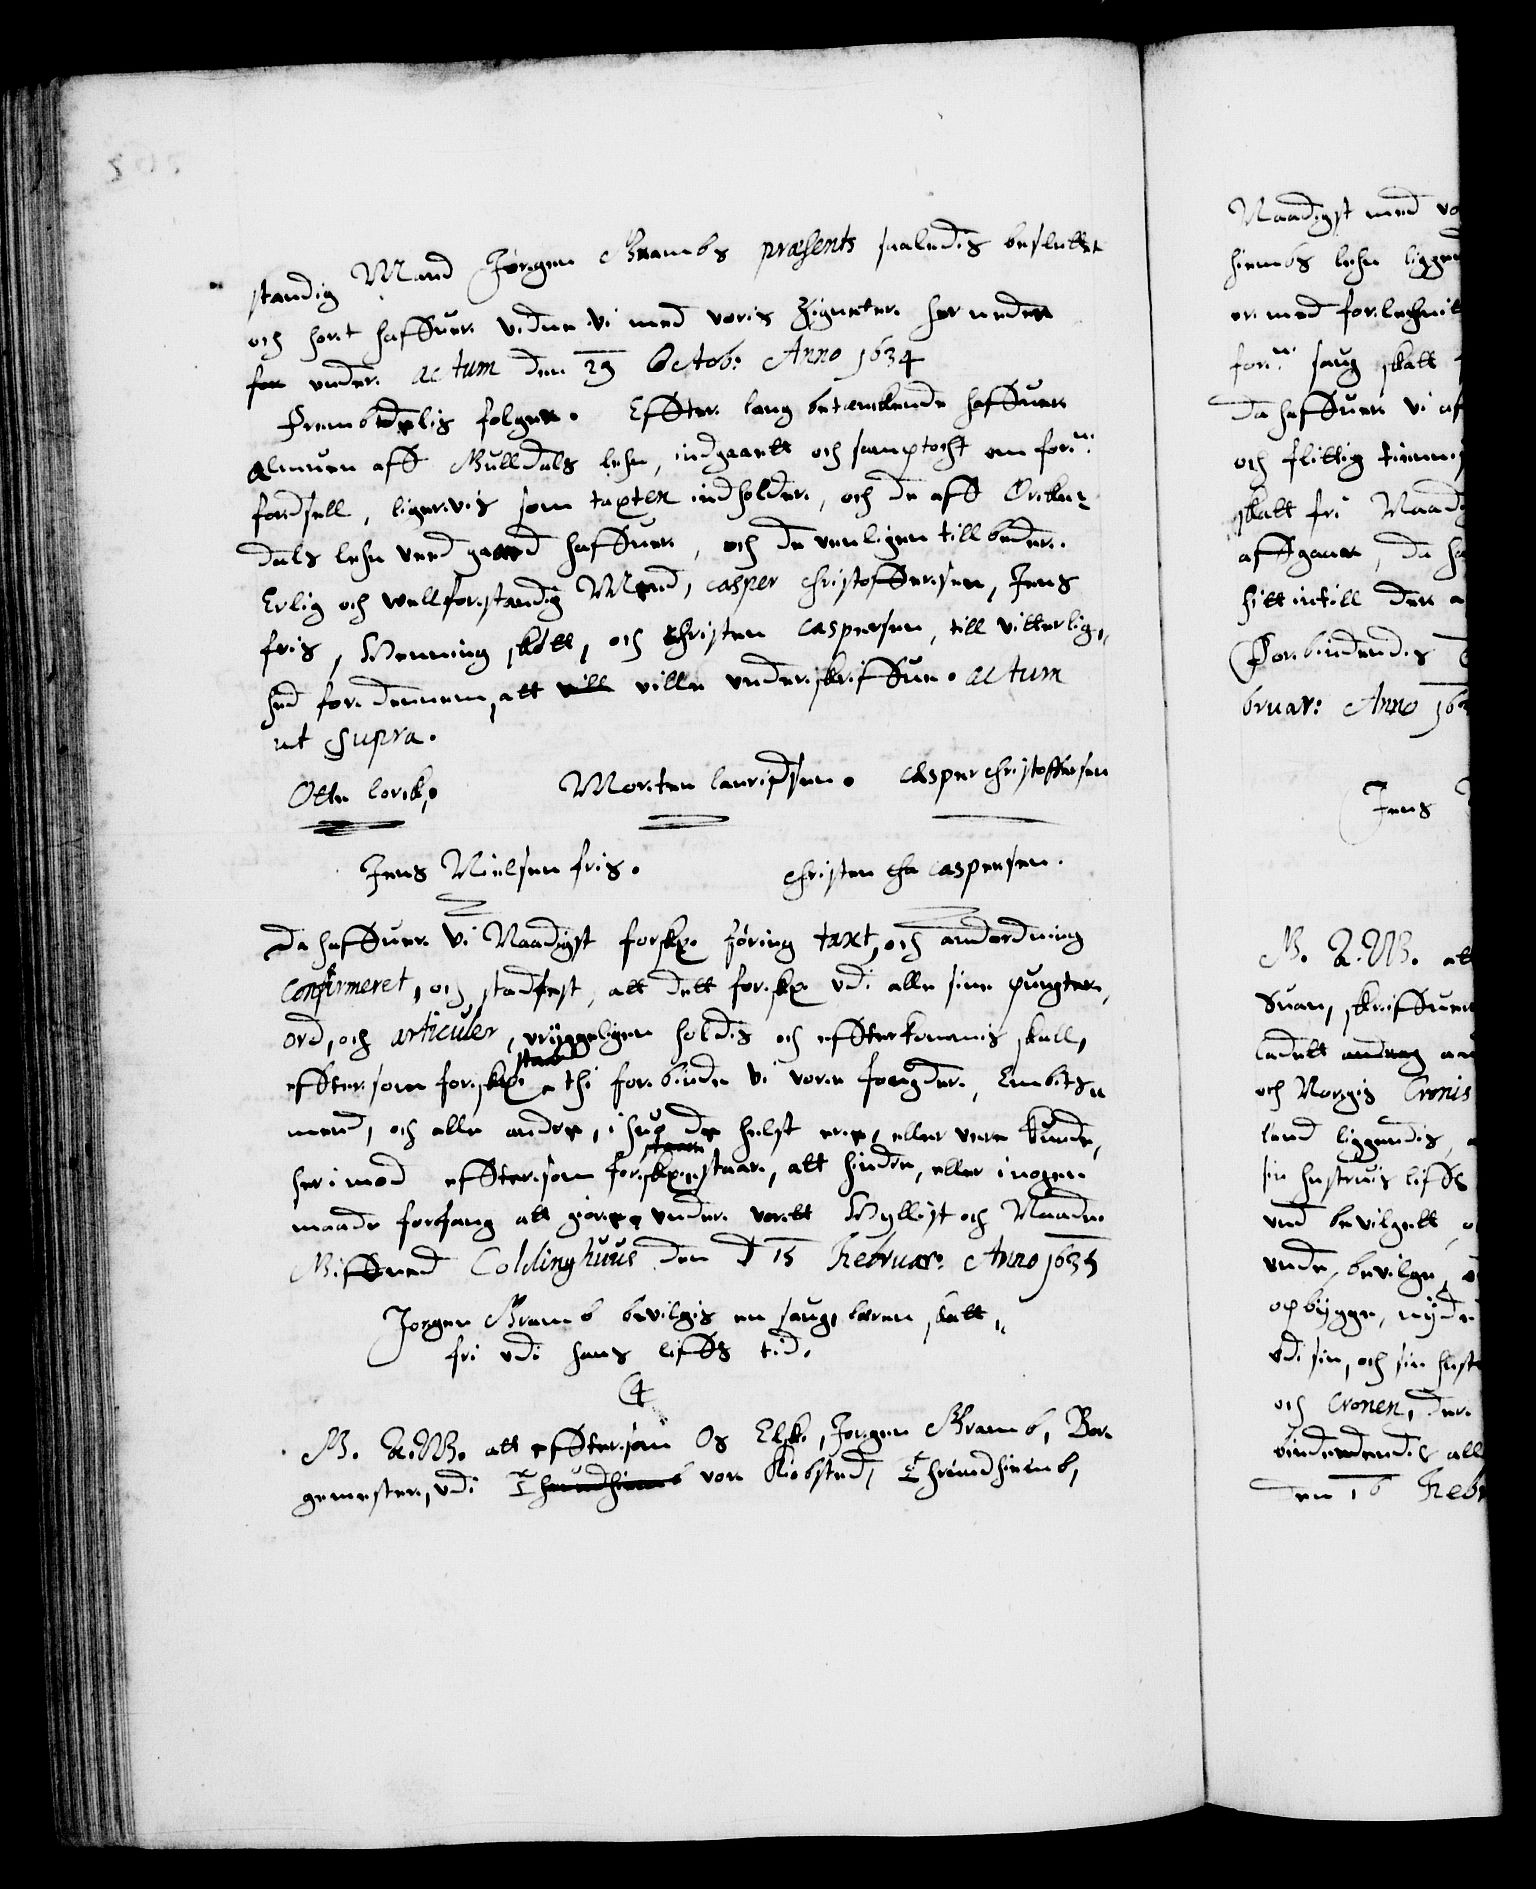 standig Mand Jørgen Brambs præsents saaledis besluttet
och hørt haffuer vidne vi med voris Zigneter her neden
for under. actum den 29 Octob: Anno 1634
Frembdelis følger. Effter lang betænckende haffuer
Almuen aff Gulldals lehn, indgaaett och samptøcht om for:ne
fordsell, ligervis som taxten indholder, och de aff Orcke¬
dals lehn ved gaaed haffuer, och de venligen till beder.
Erlig och wellforstandig Mend, Casper Christoffersen, Jens
friis, Henning skøtt, och Christen Caspersen, till vitterlig,,
hed for dennem, att vill ville underskriffue. actum
ut supra.
Otte lorck,
Morten lauridsen. Casper Christoffersen
Jens Nielsen friis.
Christen Cha Caspersen.
Da haffuer Vi Naadigst forskr: føring taxt, och anordning
Confirmeret, och stadfest, att dett forskr: udi alle sine pungter,
ord, och articuler, uryggeligen holdis och effterkommis skall,
efftersom forskr: staar thi forbinde vi vore fougder, Embits,,
mend, och alle andre, i huo de helst ere, eller vere kunde,
her imod efftersom forskr: staar, att hindre, eller i nogen
maade forfang att giøre, under vortt Hyllist och Naade.
Giffued Coldinghuus den d 15 Februar: Anno 1635
Jørgen Bramb bevilgis en saug, veren skatt,,
fri udi hans liffs tid.
4
G. A. W. att efftersom Os Elsk, Jørgen Bramb, Bor,
gemester, udi Thrundhiemb vor Kiøbsted, Thrundhiemb,
Naadigst med vo
hiembs lehn liggen
er med forlehnit
for:ne saug skatt
da haffuer vi af
och flittig
skatt fri Naad
affgaar, da ha
hid intill der a
Forbindendis
bruar: Anno 163
Jens
G. A. W. att
Suan, skriffuer
ladett andrag an
och Norgis Cronis
land liggendis, a
sin hustruis liffs
und bevilgett, o
unde, bevilge, o
opbygge, nyde
udi sin, och sin hust
och Cronen, der
bindendis all
den 16 Febr